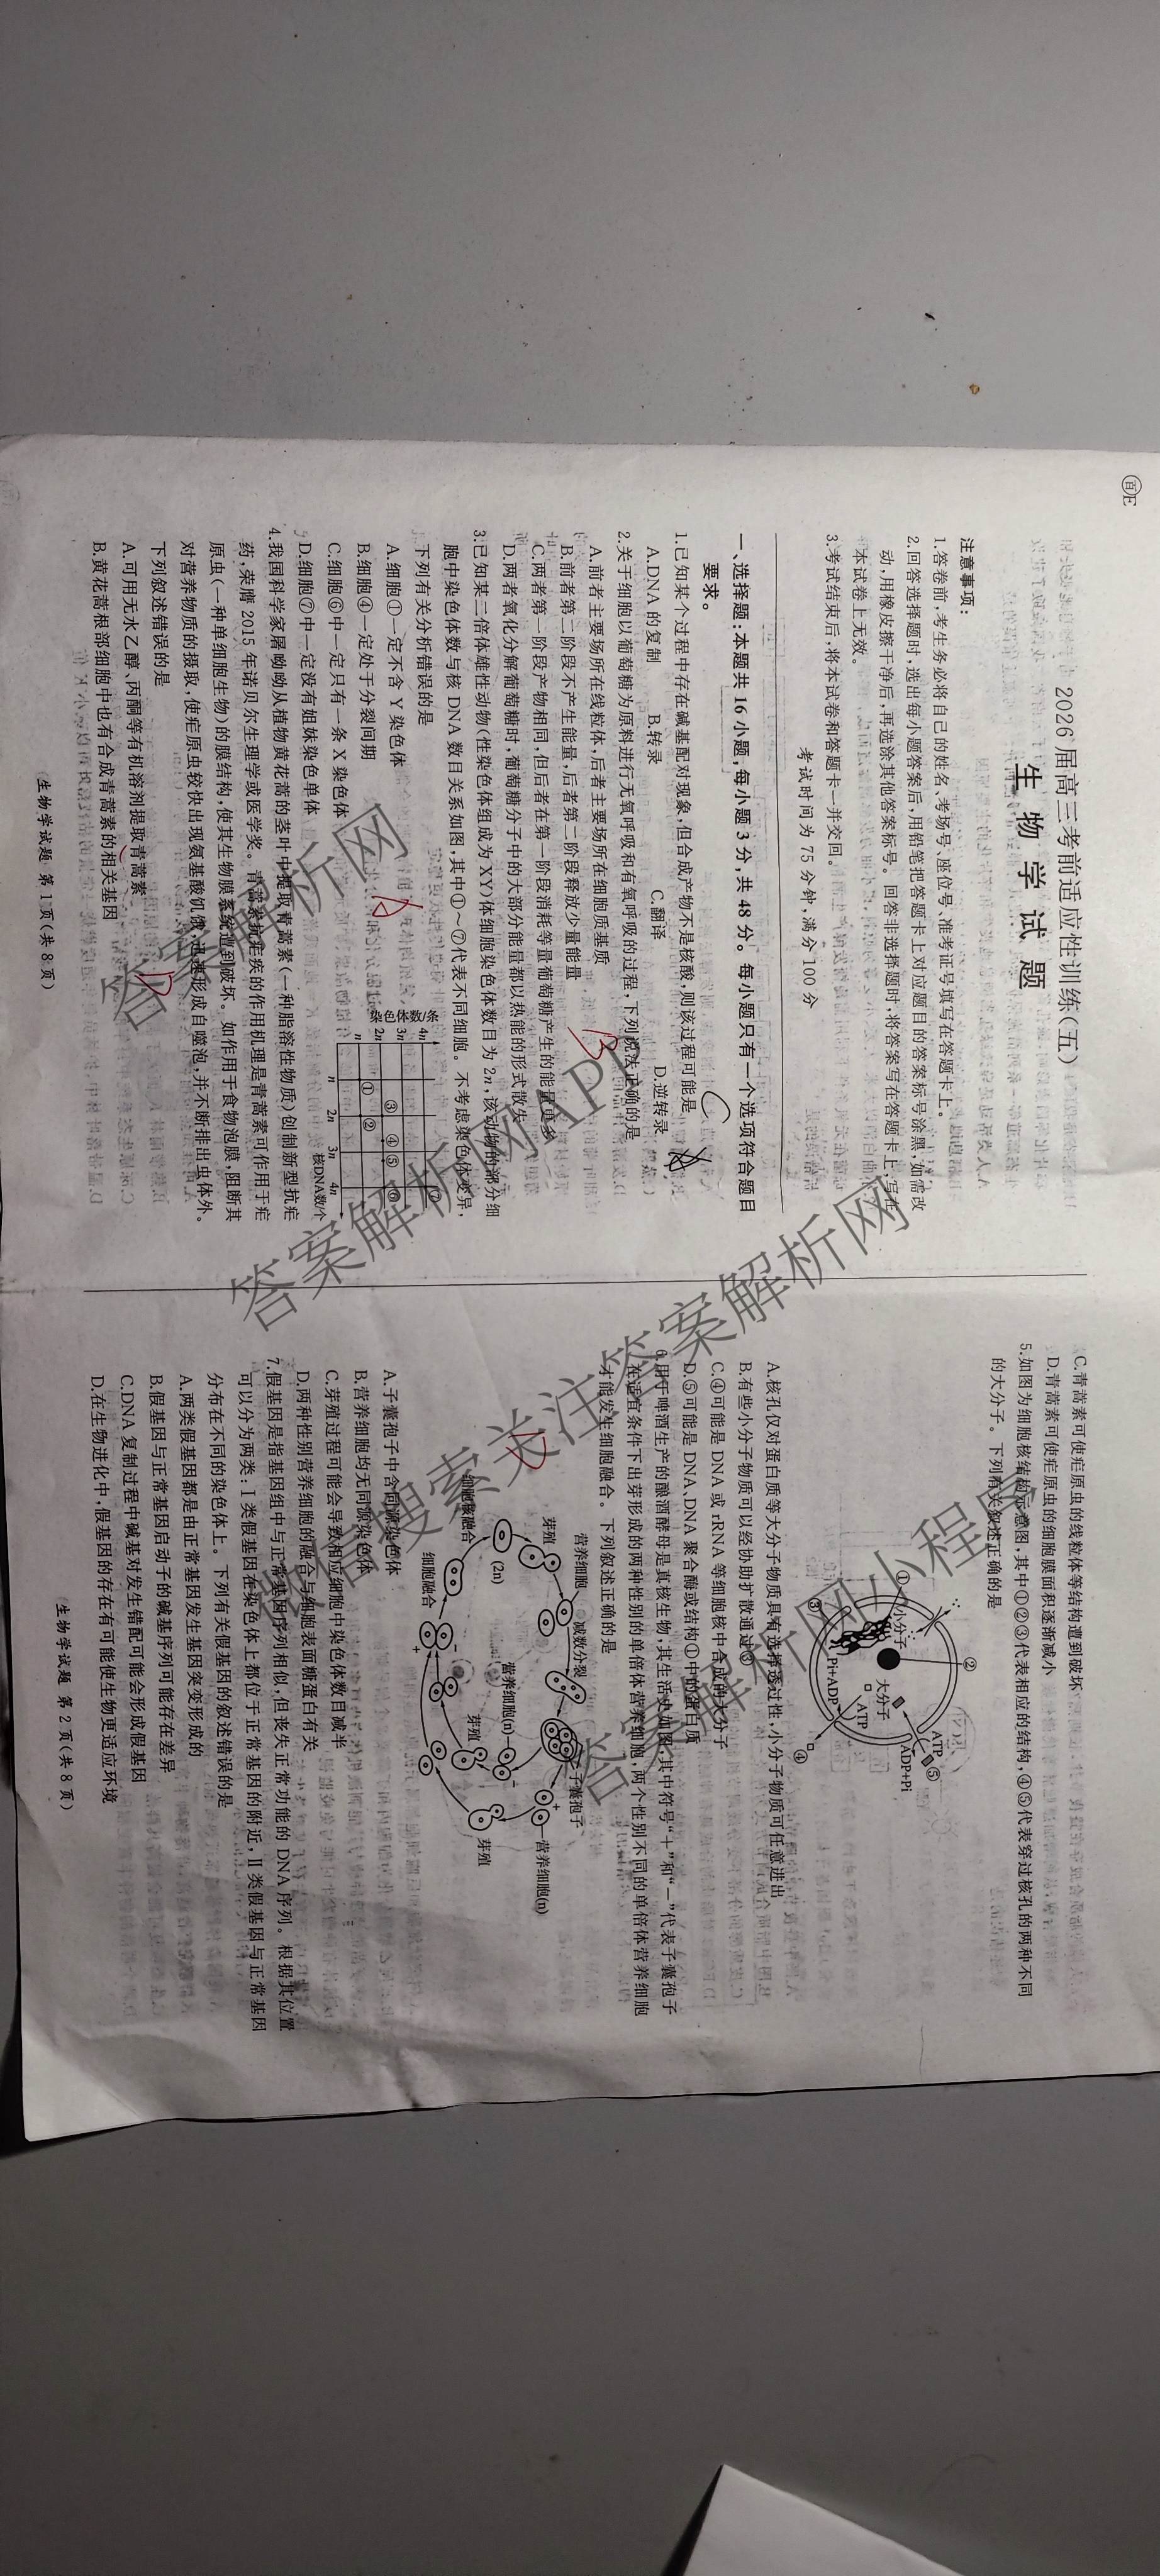 百E
2026届高三考前适应性训练(五)
生 物 学 试 题
注意事项：
1.答卷前,考生务必将自己的姓名、考场号、座位号、准考证号填写在答题卡上。
2.回答选择题时,选出每小题答案后,用铅笔把答题卡上对应题目的答案标号涂黑,如需改
动,用橡皮擦干净后,再选涂其他答案标号。回答非选择题时,将答案写在答题卡上,写在
本试卷上无效。
3.考试结束后,将本试卷和答题卡一并交回。
考试时间为75分钟,满分100分
一、选择题:本题共16小题,每小题3分,共48分。每小题只有一个选项符合题目
要求。
1.已知某个过程中存在碱基配对现象,但合成产物不是核酸,则该过程可能是
C
A.DNA的复制 B.转录 C.翻译 D.逆转录
2.关于细胞以葡萄糖为原料进行无氧呼吸和有氧呼吸的过程,下列说法正确的是
B
A.前者主要场所在线粒体,后者主要场所在细胞质基质
B.前者第二阶段不产生能量,后者第二阶段释放少量能量
C.两者第一阶段产物相同,但后者在第一阶段消耗等量葡萄糖产生的能量更多
D.两者氧化分解葡萄糖时,葡萄糖分子中的大部分能量都以热能的形式散失
3.已知某二倍体雄性动物(性染色体组成为XY)体细胞染色体数目为2n,该动物的部分细
胞中染色体数与核DNA数目关系如图,其中①~⑦代表不同细胞。不考虑染色体变异,
下列有关分析错误的是
A
A.细胞①一定不含Y染色体
B.细胞④一定处于分裂间期
C.细胞⑥中一定只有一条X染色体
D.细胞⑦中一定没有姐妹染色单体
染色体数/条
4n
3n
2n
n
① ② ③ ④ ⑤ ⑥ ⑦
n 2n 3n 4n 核DNA数/个
4.我国科学家屠呦呦从植物黄花蒿的茎叶中提取青蒿素(一种脂溶性物质)创制新型抗疟
药,荣膺2015年诺贝尔生理学或医学奖。青蒿素抗疟疾的作用机理是青蒿素可作用于疟
原虫(一种单细胞生物)的膜结构,使其生物膜系统遭到破坏。如作用于食物泡膜,阻断其
对营养物质的摄取,使疟原虫较快出现氨基酸饥饿,迅速形成自噬泡,并不断排出虫体外。
下列叙述错误的是
D
A.可用无水乙醇、丙酮等有机溶剂提取青蒿素
B.黄花蒿根部细胞中也有合成青蒿素的相关基因
生物学试题 第1页(共8页)
C.青蒿素可使疟原虫的线粒体等结构遭到破坏
D.青蒿素可使疟原虫的细胞膜面积逐渐减小
5.如图为细胞核结构示意图,其中①②③代表相应的结构,④⑤代表穿过核孔的两种不同
的大分子。下列有关叙述正确的是
①
②
③
④
⑤
小分子
大分子
ATP
ADP+Pi
ATP
Pi+ADP
A.核孔仅对蛋白质等大分子物质具有选择透过性,小分子物质可任意进出
B.有些小分子物质可以经协助扩散通过③
C.④可能是DNA或rRNA等细胞核中合成的大分子
D.⑤可能是DNA、DNA聚合酶或结构①中的蛋白质
6.用于啤酒生产的酿酒酵母是真核生物,其生活史如图,其中符号“+”和“-”代表子囊孢子
在适宜条件下出芽形成的两种性别的单倍体营养细胞,两个性别不同的单倍体营养细胞
才能发生细胞融合。下列叙述正确的是
D
营养细胞
芽殖
(2n)
减数分裂
子囊孢子
营养细胞(n)
营养细胞(n)
芽殖
芽殖
细胞融合
细胞核融合
A.子囊孢子中含同源染色体
B.营养细胞均无同源染色体
C.芽殖过程可能会导致相应细胞中染色体数目减半
D.两种性别营养细胞的融合与细胞表面糖蛋白有关
7.假基因是指基因组中与正常基因序列相似,但丧失正常功能的DNA序列。根据其位置
可以分为两类:Ⅰ类假基因在染色体上都位于正常基因的附近,Ⅱ类假基因与正常基因
分布在不同的染色体上。下列有关假基因的叙述错误的是
A.两类假基因都是由正常基因发生基因突变形成的
B.假基因与正常基因启动子的碱基序列可能存在差异
C.DNA复制过程中碱基对发生错配可能会形成假基因
D.在生物进化中,假基因的存在有可能使生物更适应环境
生物学试题 第2页(共8页)
答案解析网
答案解析网APP
答案解析网
微信搜索关注答案解析网
答案解析网小程序